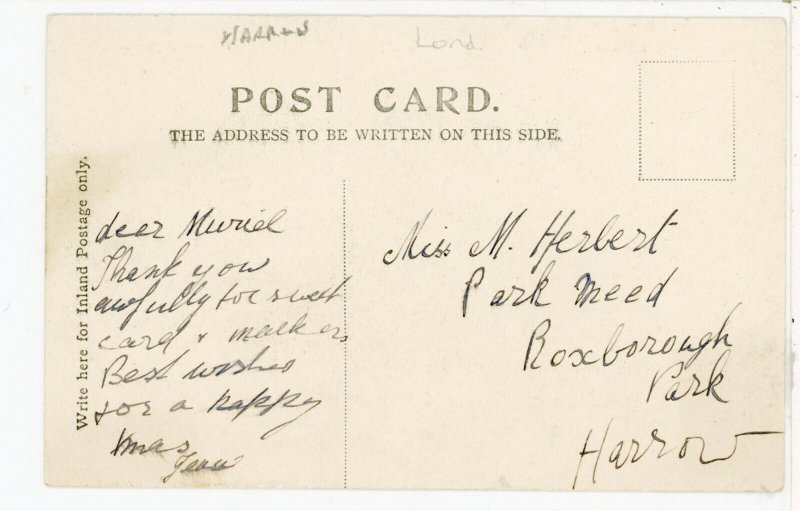 HARROW
Lond.
POST CARD.
THE ADDRESS TO BE WRITTEN ON THIS SIDE.
Write here for Inland Postage only.
dear Muriel
Thank you
awfully for sweet
card &
Best wishes
for a happy
Xmas
Miss M. Herbert
Park Meed
Roxborough
Park
Harrow